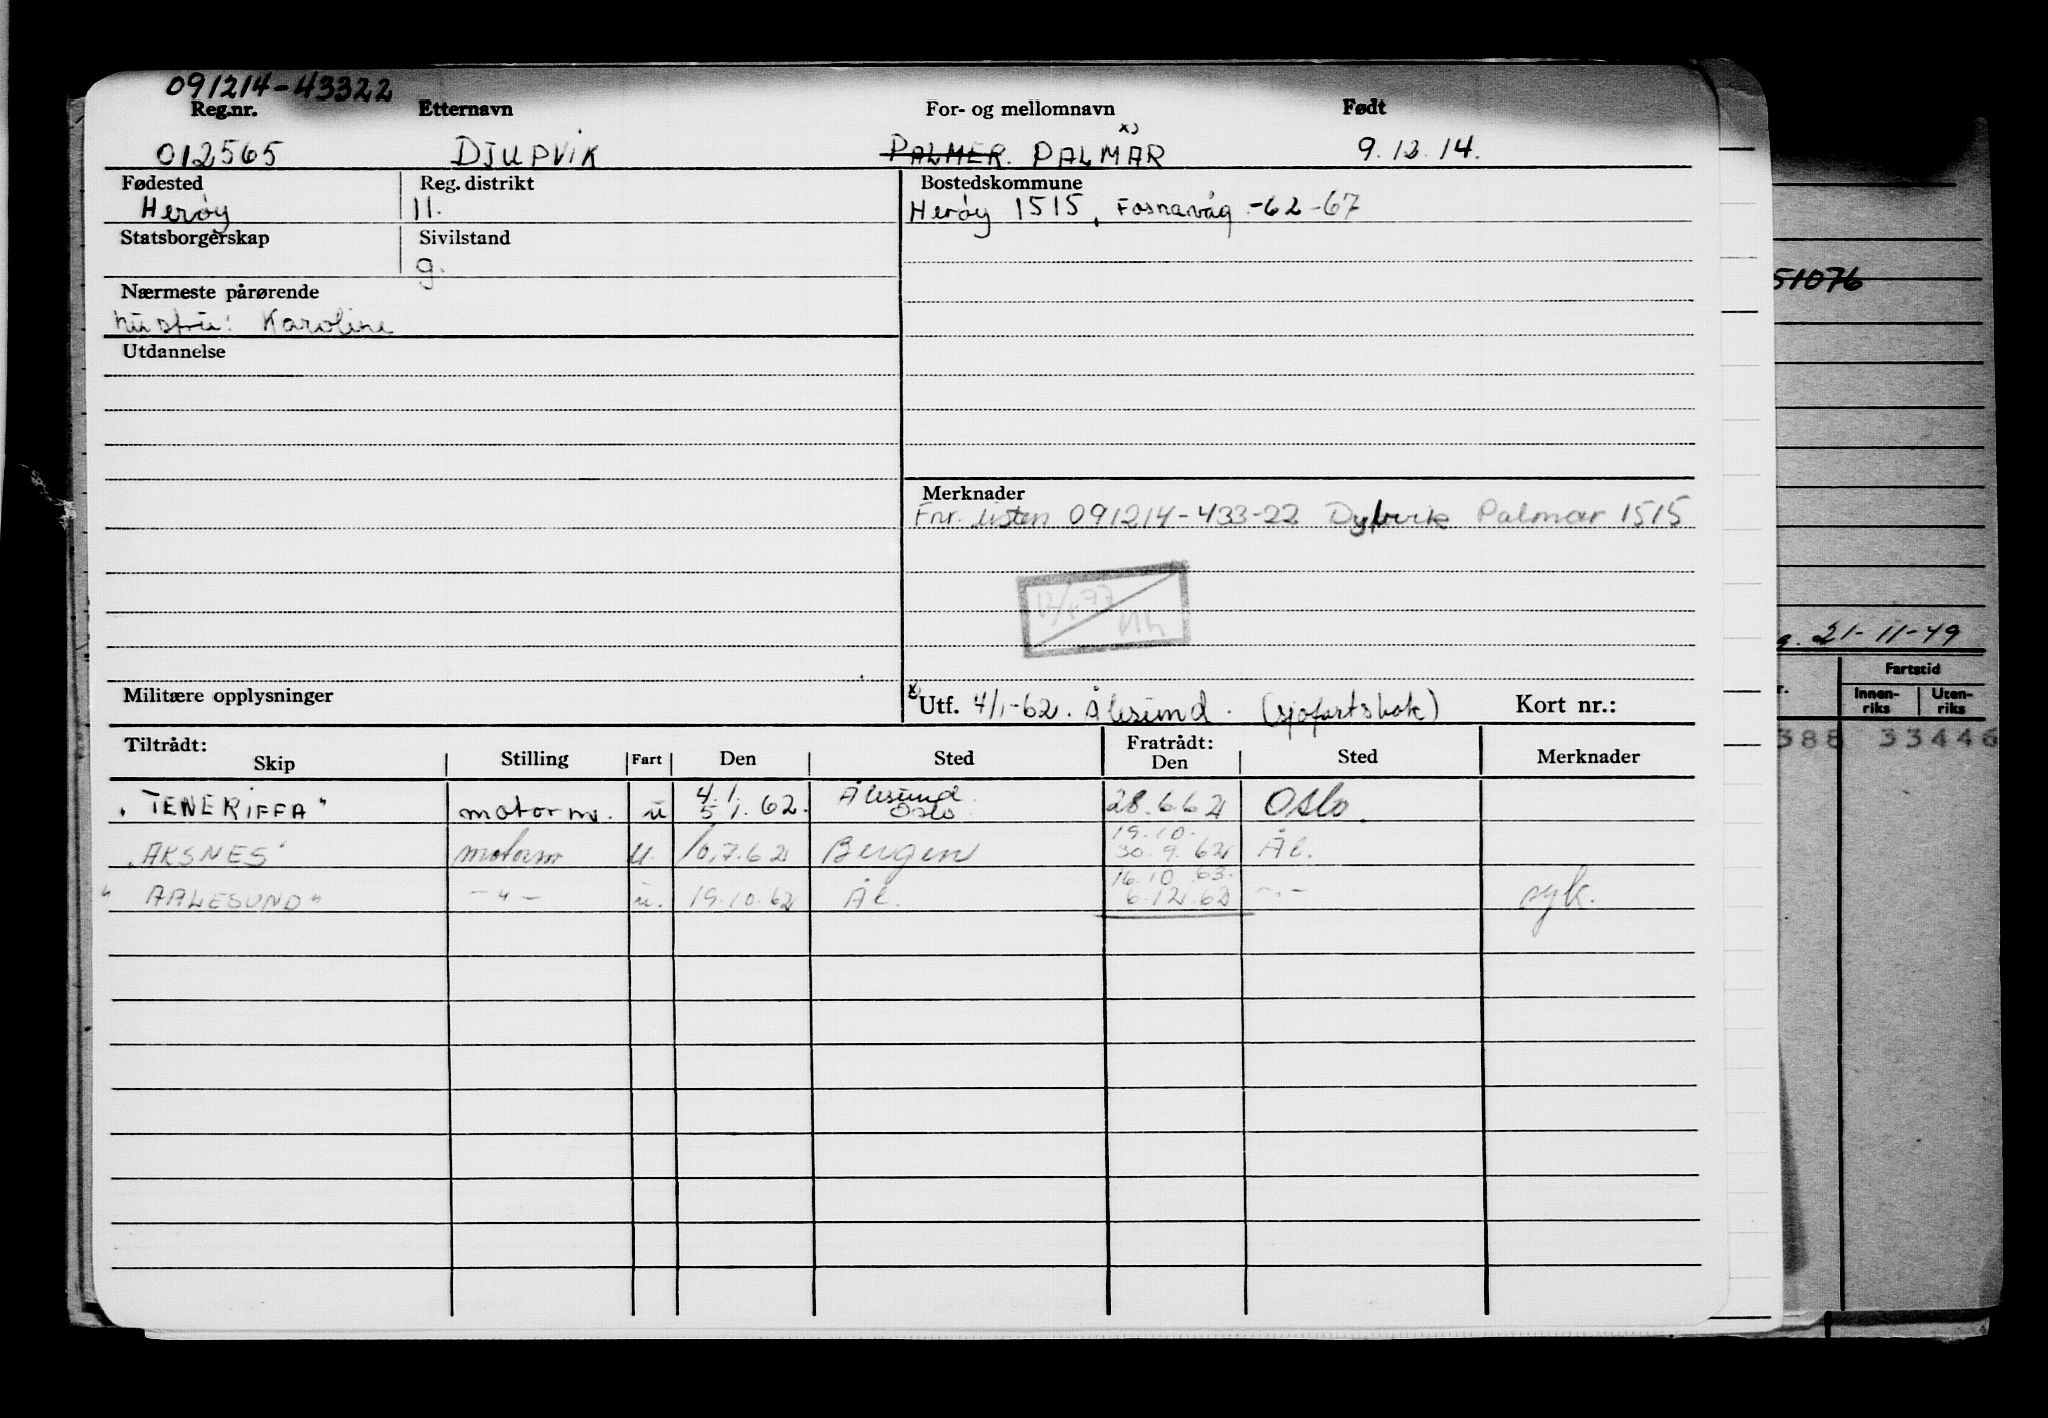 091214-43322
Reg.nr. Etternavn For- og mellomnavn Født
012565 DJUPVIK PALMER. PALMAR x) 9.12.14.
Fødested Reg. distrikt Bostedskommune
Herøy 11. Herøy 1515, Fosnavåg -62-67
Statsborgerskap Sivilstand
g.
Nærmeste pårørende
hustru: Karoline
Utdannelse
Merknader
Fnr. listen 091214-433-22 Dypvik Palmar 1515
Militære opplysninger x) Utf. 4/1-62. Ålesund. (sjøfartsbok) Kort nr.:
Tiltrådt: Fratrådt:
Skip Stilling Fart Den Sted Den Sted Merknader
4.1. Ålesund
"TENERIFFA" motorm. u 5.1.62. Oslo 28.6.62 Oslo.
19.10.
"AKSNES" motorm u. 10.7.62 Bergen 30.9.62 Ål.
16.10.63.
"AALESUND" -"- u. 19.10.62 Ål. 6.12.62 -"- syk.
51076
21-11-49
Fartstid
Innen-riks Uten-riks
388 33446